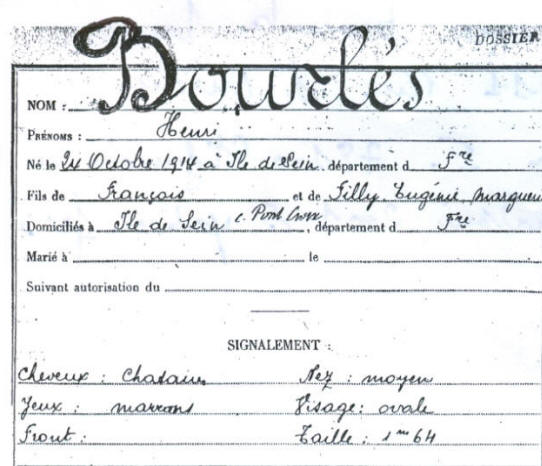 DOSSIER
NOM : Bourlés
PRÉNOMS : Henri
Né le 24 Octobre 1914 à Ile de Sein, département d Fre
Fils de François et de Tilly, Eugénie, Marguerite
Domiciliés à Ile de Sein c. Pont Croix, département d Fre
Marié à le
Suivant autorisation du
SIGNALEMENT :
Cheveux : Chatains Nez : moyen
Yeux : marrons Visage : ovale
Front : Taille : 1m 64